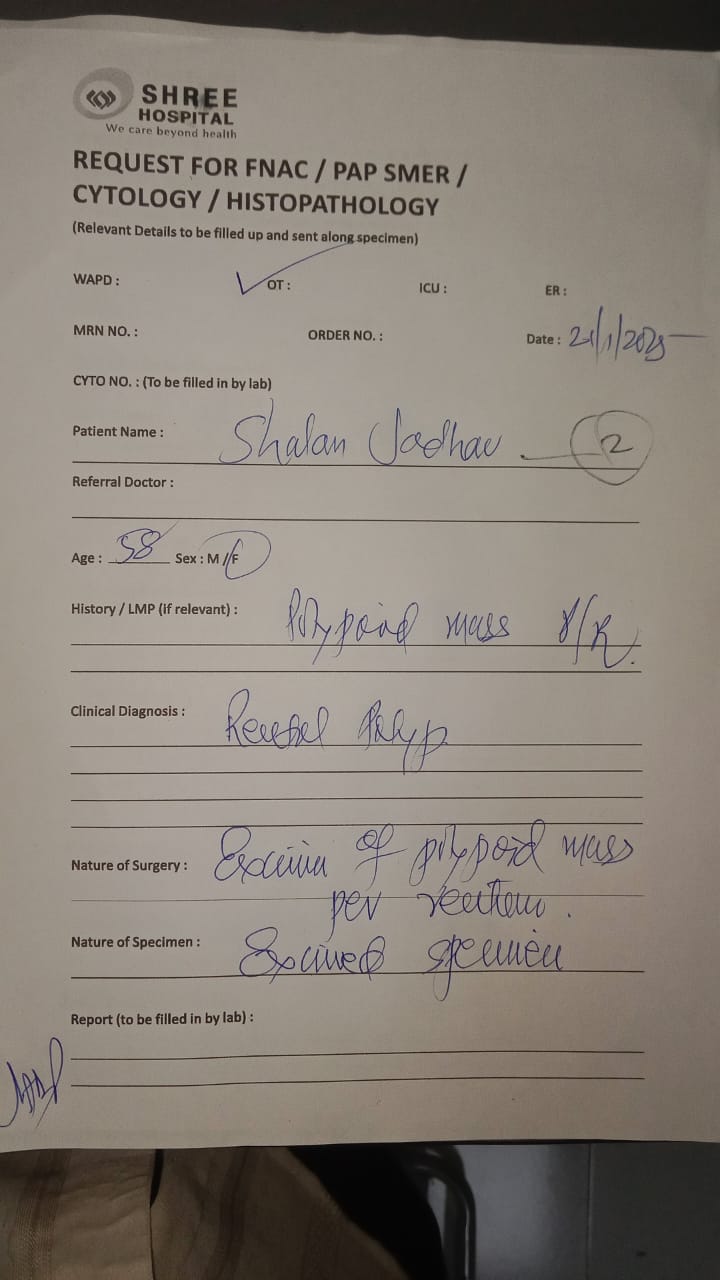 SHREE
HOSPITAL
We care beyond health
REQUEST FOR FNAC / PAP SMER /
CYTOLOGY / HISTOPATHOLOGY
(Relevant Details to be filled up and sent along specimen)
WAPD : OT : ICU : ER :
MRN NO. : ORDER NO. : Date : /1/2025
CYTO NO. : (To be filled in by lab)
Patient Name : Shalan Jadhav 2
Referral Doctor :
Age : 58 Sex : M / F
History / LMP (if relevant) : Polypoid mass P/R
Clinical Diagnosis : Rectal Polyp
Nature of Surgery : Excision of polypoid mass
per rectum.
Nature of Specimen : Excised specimen
Report (to be filled in by lab) :